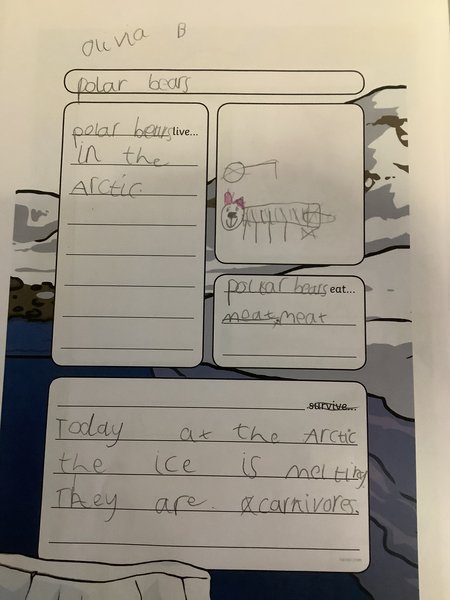 Olivia B
polar bears
polar bears live...
in the
Arctic
pollar bears eat...
meat, meat
survive...
Today at the Arctic
the ice is melting
They are carnivores.